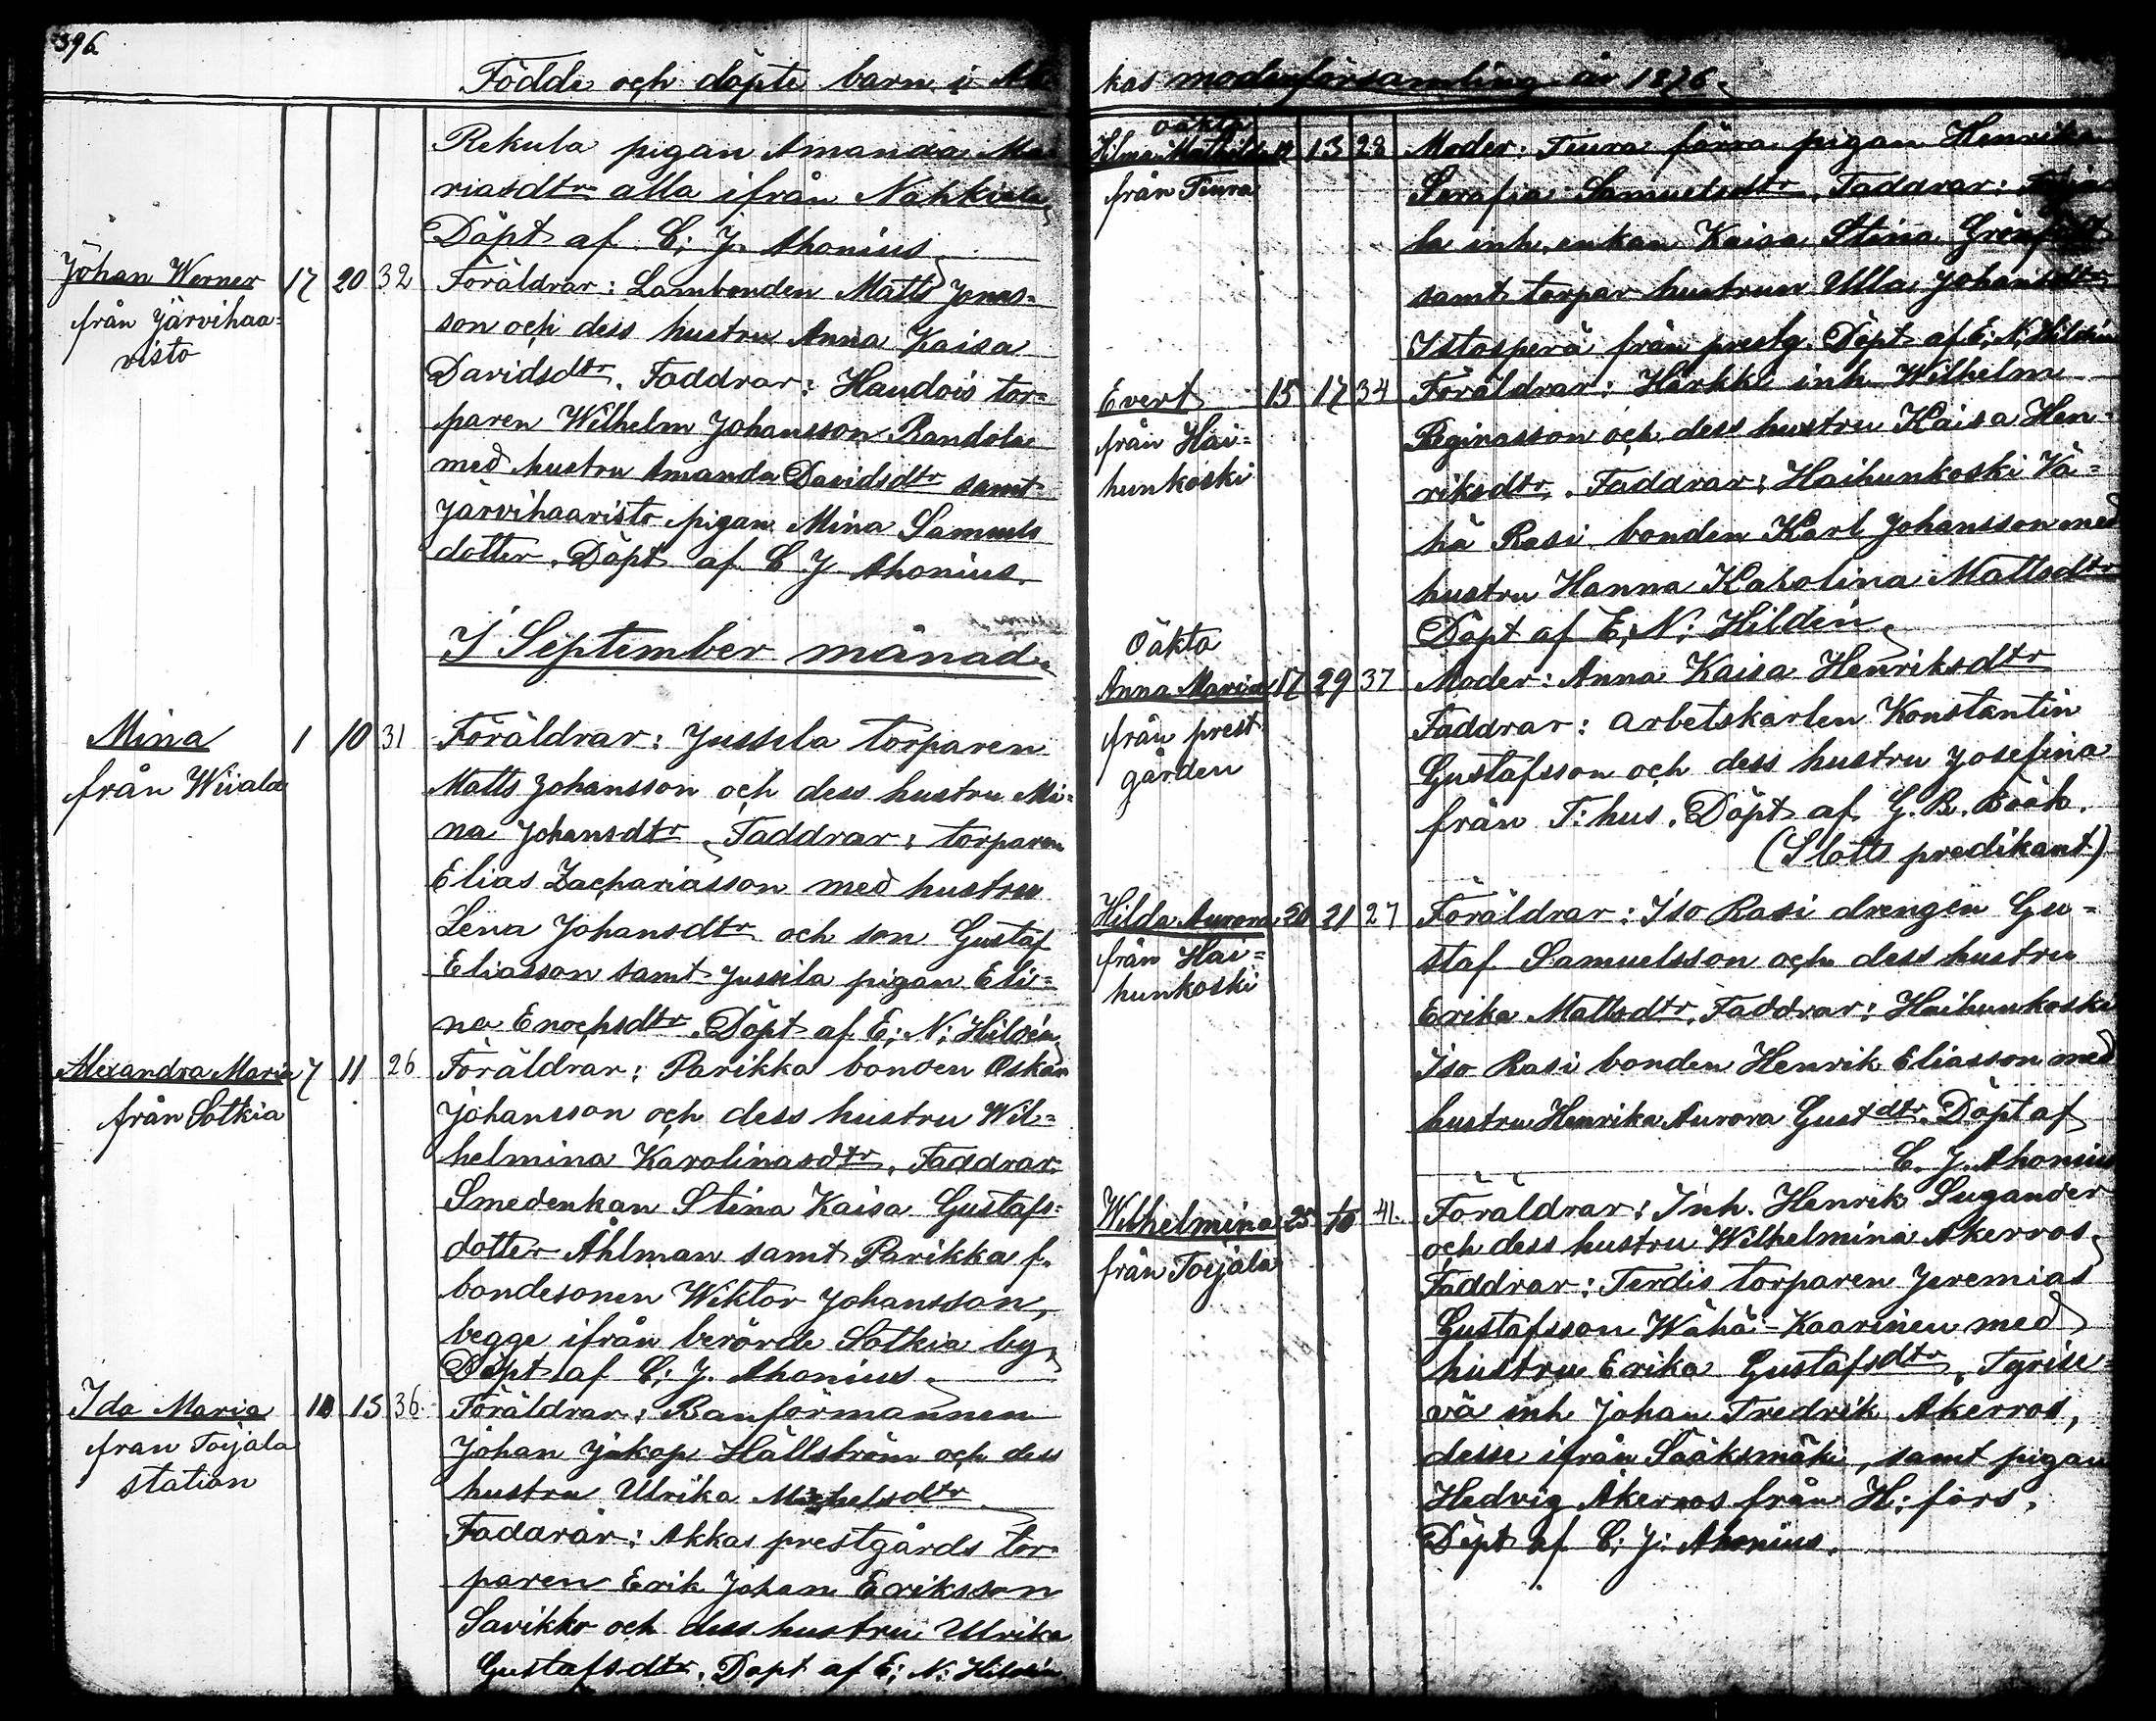 396.
Födde och döpte barn i Ak
Rekula pigan Amanda Ma-
riasdtr alla ifrån Nahkiala,
Döpt af C: J. Ahonius.
Johan Werner 17 20 32 Föräldrar: Lambonden Matts Jonas=
från Järvihaa= son och dess hustru Anna Kaisa
risto Davidsdtr. Faddrar: Haudois tor=
paren Wilhelm Johansson Randola
med hustru Amanda Davidsdtr samt
Järvihaaristo pigan Mina Samuels
dotter. Döpt af C J Ahonius.
I September månad.
Mina 1 10 31 Föräldrar: Jussila torparen
från Wiiala Matts Johansson och dess hustru Mi=
na Johansdtr. Faddrar: torparen
Elias Zachariasson med hustru
Lena Johansdtr och son Gustaf
Eliasson samt Jussila pigan Eli=
na Enochsdtr. Döpt af E: N: Hildén
Alexandra Maria 7 11 26 Föräldrar: Parikka bonden Oskar
från Sotkia Johansson och dess hustru Wil=
helmina Karolinasdtr. Faddrar:
Smedenkan Stina Kaisa Gustafs=
dotter Åhlman samt Parikka f.
bondesonen Wiktor Johansson,
begge ifrån berörde Sotkia by,
Döpt af C: J. Ahonius.
Ida Maria 10 15 36. Föräldrar: Banförmannen
från Toijala Johan Jakop Hällström och dess
station hustru Ulrika Michelsdtr
Faddrar: Akkas prestgårds tor=
paren Erik Johan Eriksson
Savikko och dess hustru Ulrika
Gustafsdtr. Döpt af E: N: Hildén
kas moderförsamling år 1876.
oäkta
Hilma Mathilda 13 28 Moder: Tiura förra pigan Henrika
från Tiura Serafia Samuelsdtr. Faddrar:
la inh. enkan Kaisa Stina
samt torpar hustrun Ulla Johansdtr
Istosperä från prestg. Döpt af E: N: Hildén
Evert 15 17 34 Föräldrar: Härkki inh. Wilhelm
från Hai= Reginasson och dess hustru Kaisa Hen=
hunkoski riksdtr. Faddrar: Haihunkoski Vä=
hä Rasi bonden Karl Johansson med
hustru Hanna Karolina Mattsdtr
Döpt af E: N: Hildén.
Oäkta
Anna Maria 17 29 37 Moder: Anna Kaisa Henriksdtr
från prest Faddrar: arbetskarlen Konstantin
gården Gustafsson och dess hustru Josefina
från T: hus. Döpt af G. R. Bääk.
(Slotts predikant)
Hilda Aurora 20 21 27 Föräldrar: Iso Rasi drengen Gu=
från Hai= staf Samuelsson och dess hustru
hunkoski Erika Mattsdtr. Faddrar: Haihunkoski
Iso Rasi bonden Henrik Eliasson med
hustru Henrika Aurora Gustdtr. Döpt af
C. J. Ahonius
Wilhelmina 25 10 41. Föräldrar: Inh. Henrik Lugander
från Toijala och dess hustru Wilhelmina Akerros.
Faddrar: Terdis torparen Jeremias
Gustafsson Wähä-Kaarinen med
hustru Erika Gustafsdtr, Tyrise=
vä inh Johan Fredrik Akerros,
desse ifrån Sääksmäki, samt pigan
Hedvig Akerros från H: fors.
Döpt af C: J: Ahonius.